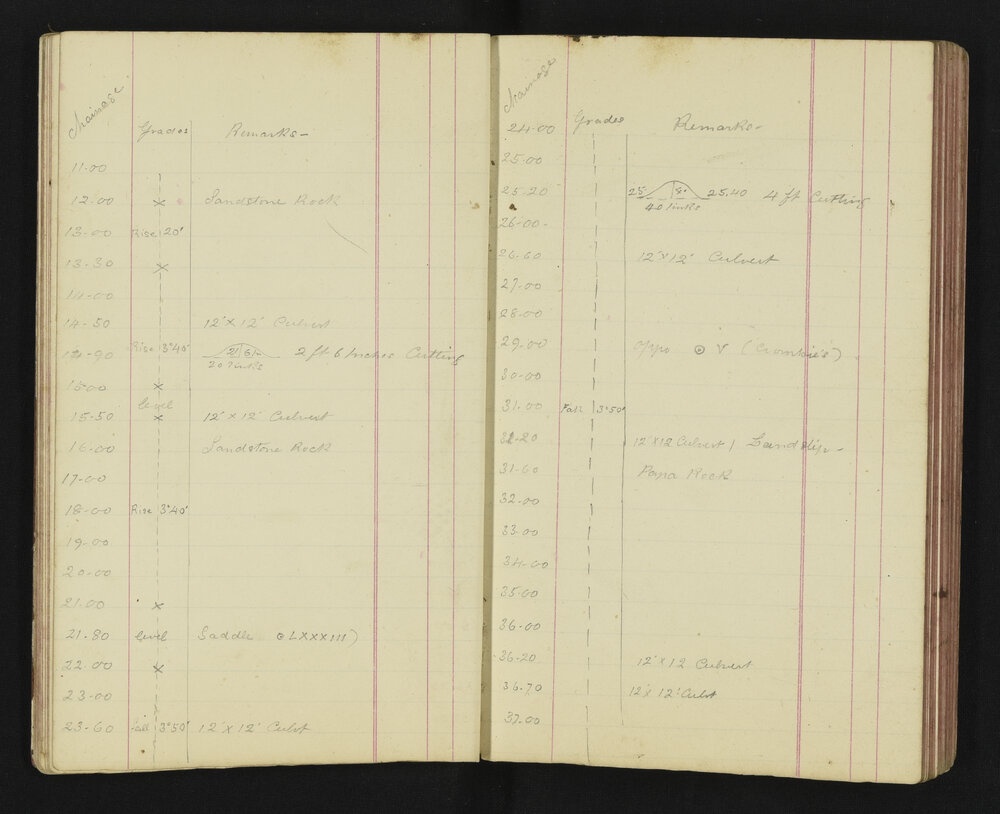 Chainage
Grades Remarks-
11.00
12.00 × Sandstone Rock
13-00 Rise 20'
13-30 ×
14-00
14-50 12'x12' Culvert
14-90 Rise 3°40' 2'6" 2 ft 6 Inches Cutting
20 links
15.00 ×
level
15-50 × 12'x12' Culvert
16-00 Sandstone Rock
17-00
18-00 Rise 3°40'
19-00
20-00
21.00 ×
21-80 level Saddle ⊙ LXXXIII)
22.00 ×
23-00
23-60 fall 3°50' 12'x12' Culvt
Chainage
24-00 Grades Remarks-
25.00
25.20 25 8' 25.40 4 ft Cutting
40 links
26-00-
26-60 12'x12' Culvert
27-00
28-00
29-00 oppo ⊙ V (Crombie's)
30-00
31.00 Fall 3°50'
31-20 12'x12 Culvert / Landslip-
31-60 Papa Rock
32.00
33.00
34-00
35.00
36-00
36-20 12'x12 Culvert
36.70 12'x12' Culvt
37.00